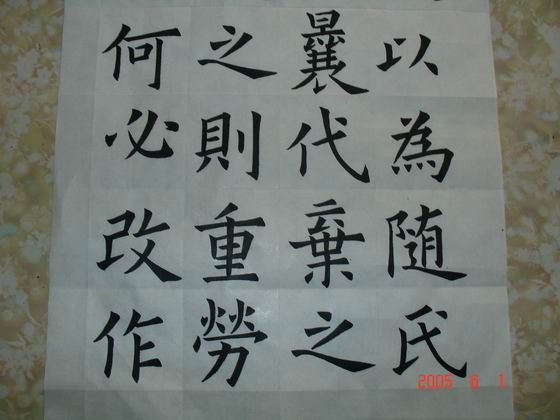 以為随氏
曩代棄之
之則重勞
何必改作
2005 6 1